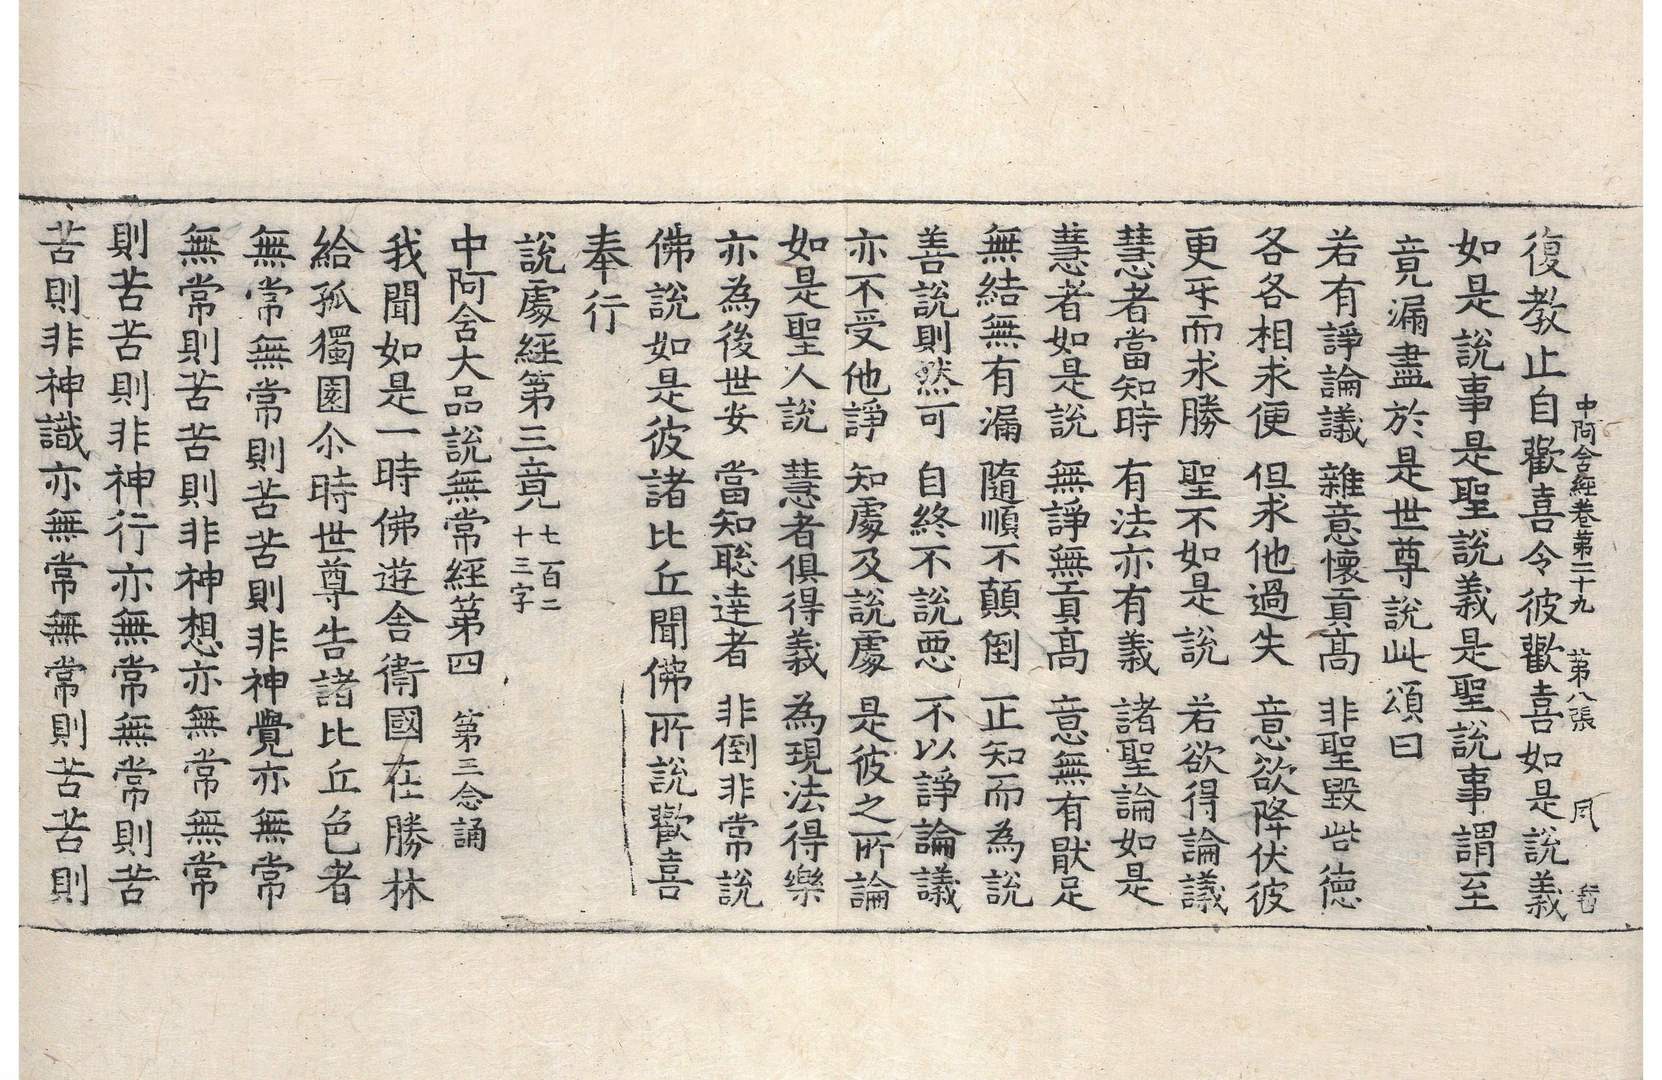 中阿含經卷第二十九 第八張
復教止自歡喜令彼歡喜如是說義
如是說事是聖說義是聖說事謂至
竟漏盡於是世尊說此頌曰
若有諍論議 雜意懷貢高 非聖毀呰德
各各相求便 但求他過失 意欲降伏彼
更互而求勝 聖不如是說 若欲得論議
慧者當知時 有法亦有義 諸聖論如是
慧者如是說 無諍無貢高 意無有厭足
無結無有漏 隨順不顛倒 正知而為說
善說則然可 自終不說惡 不以諍論議
亦不受他諍 知處及說處 是彼之所論
如是聖人說 慧者俱得義 為現法得樂
亦為後世安 當知聡達者 非倒非常說
佛說如是彼諸比丘聞佛所說歡喜
奉行
說處經第三竟 七百二十三字
中阿含大品說無常經第四 第三念誦
我聞如是一時佛遊舍衛國在勝林
給孤獨園尒時世尊告諸比丘色者
無常無常則苦苦則非神覺亦無常
無常則苦苦則非神想亦無常無常
則苦苦則非神行亦無常無常則苦
苦則非神識亦無常無常則苦苦則